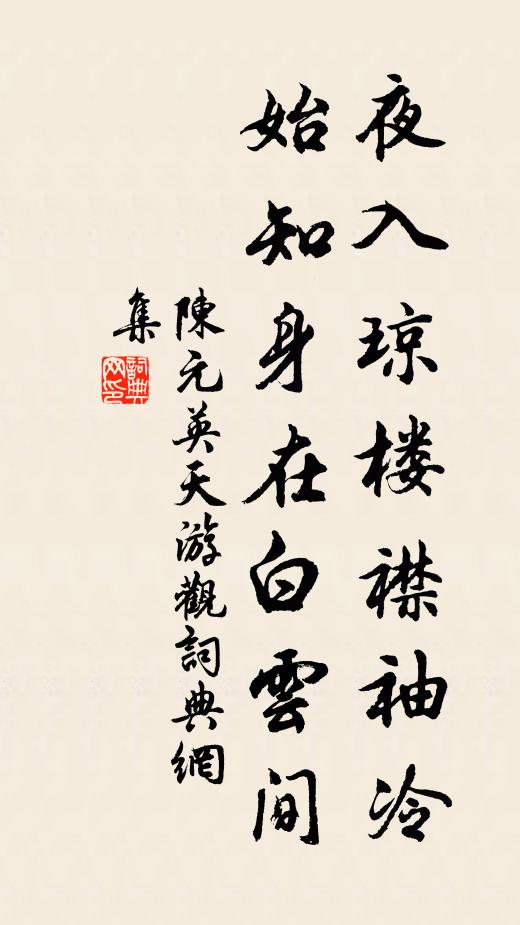 夜入琼楼襟袖冷
始知身在白雲间
陳元英天游觀詞典網
集
詞典
网印